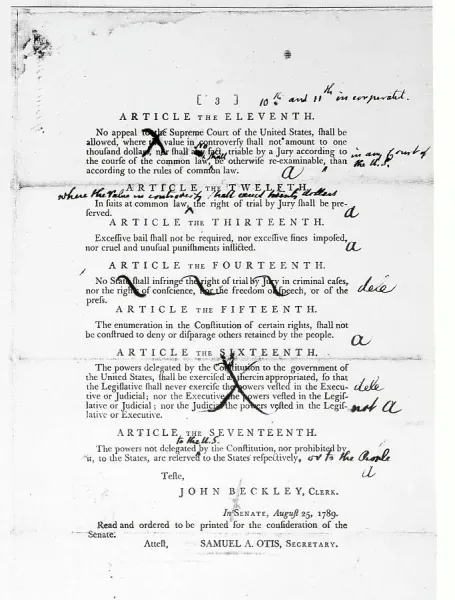 [ 3 ] 10th and 11th incorporated.
ARTICLE THE ELEVENTH.
No appeal to the Supreme Court of the United States, ſhall be
allowed, where the value in controverſy ſhall not amount to one
thouſand dollars, nor ſhall any fact, triable by a Jury according to
the courſe of the common law, be otherwiſe re-examinable, than in any Court of the U.S.
according to the rules of common law. a
ARTICLE THE TWELFTH.
where the value in controversy shall exceed twenty dollars
In ſuits at common law, the right of trial by Jury ſhall be pre-
ſerved. a
ARTICLE THE THIRTEENTH.
Exceſſive bail ſhall not be required, nor exceſſive fines impoſed,
nor cruel and unuſual puniſhments inflicted. a
ARTICLE THE FOURTEENTH.
No State ſhall infringe the right of trial by Jury in criminal caſes,
nor the rights of conſcience, nor the freedom of ſpeech, or of the dele
preſs.
ARTICLE THE FIFTEENTH.
The enumeration in the Conſtitution of certain rights, ſhall not
be conſtrued to deny or diſparage others retained by the people. a
ARTICLE THE SIXTEENTH.
The powers delegated by the Conſtitution to the government of
the United States, ſhall be exerciſed as therein appropriated, ſo that
the Legiſlative ſhall never exerciſe the powers veſted in the Execu- dele
tive or Judicial; nor the Executive the powers veſted in the Legiſ-
lative or Judicial; nor the Judicial the powers veſted in the Legiſ- not a
lative or Executive.
ARTICLE THE SEVENTEENTH.
to the U.S.
The powers not delegated by the Conſtitution, nor prohibited by
it, to the States, are reſerved to the States reſpectively, or to the People
a
Teſte,
JOHN BECKLEY, CLERK.
In SENATE, Auguſt 25, 1789.
Read and ordered to be printed for the conſideration of the
Senate.
Atteſt, SAMUEL A. OTIS, SECRETARY.